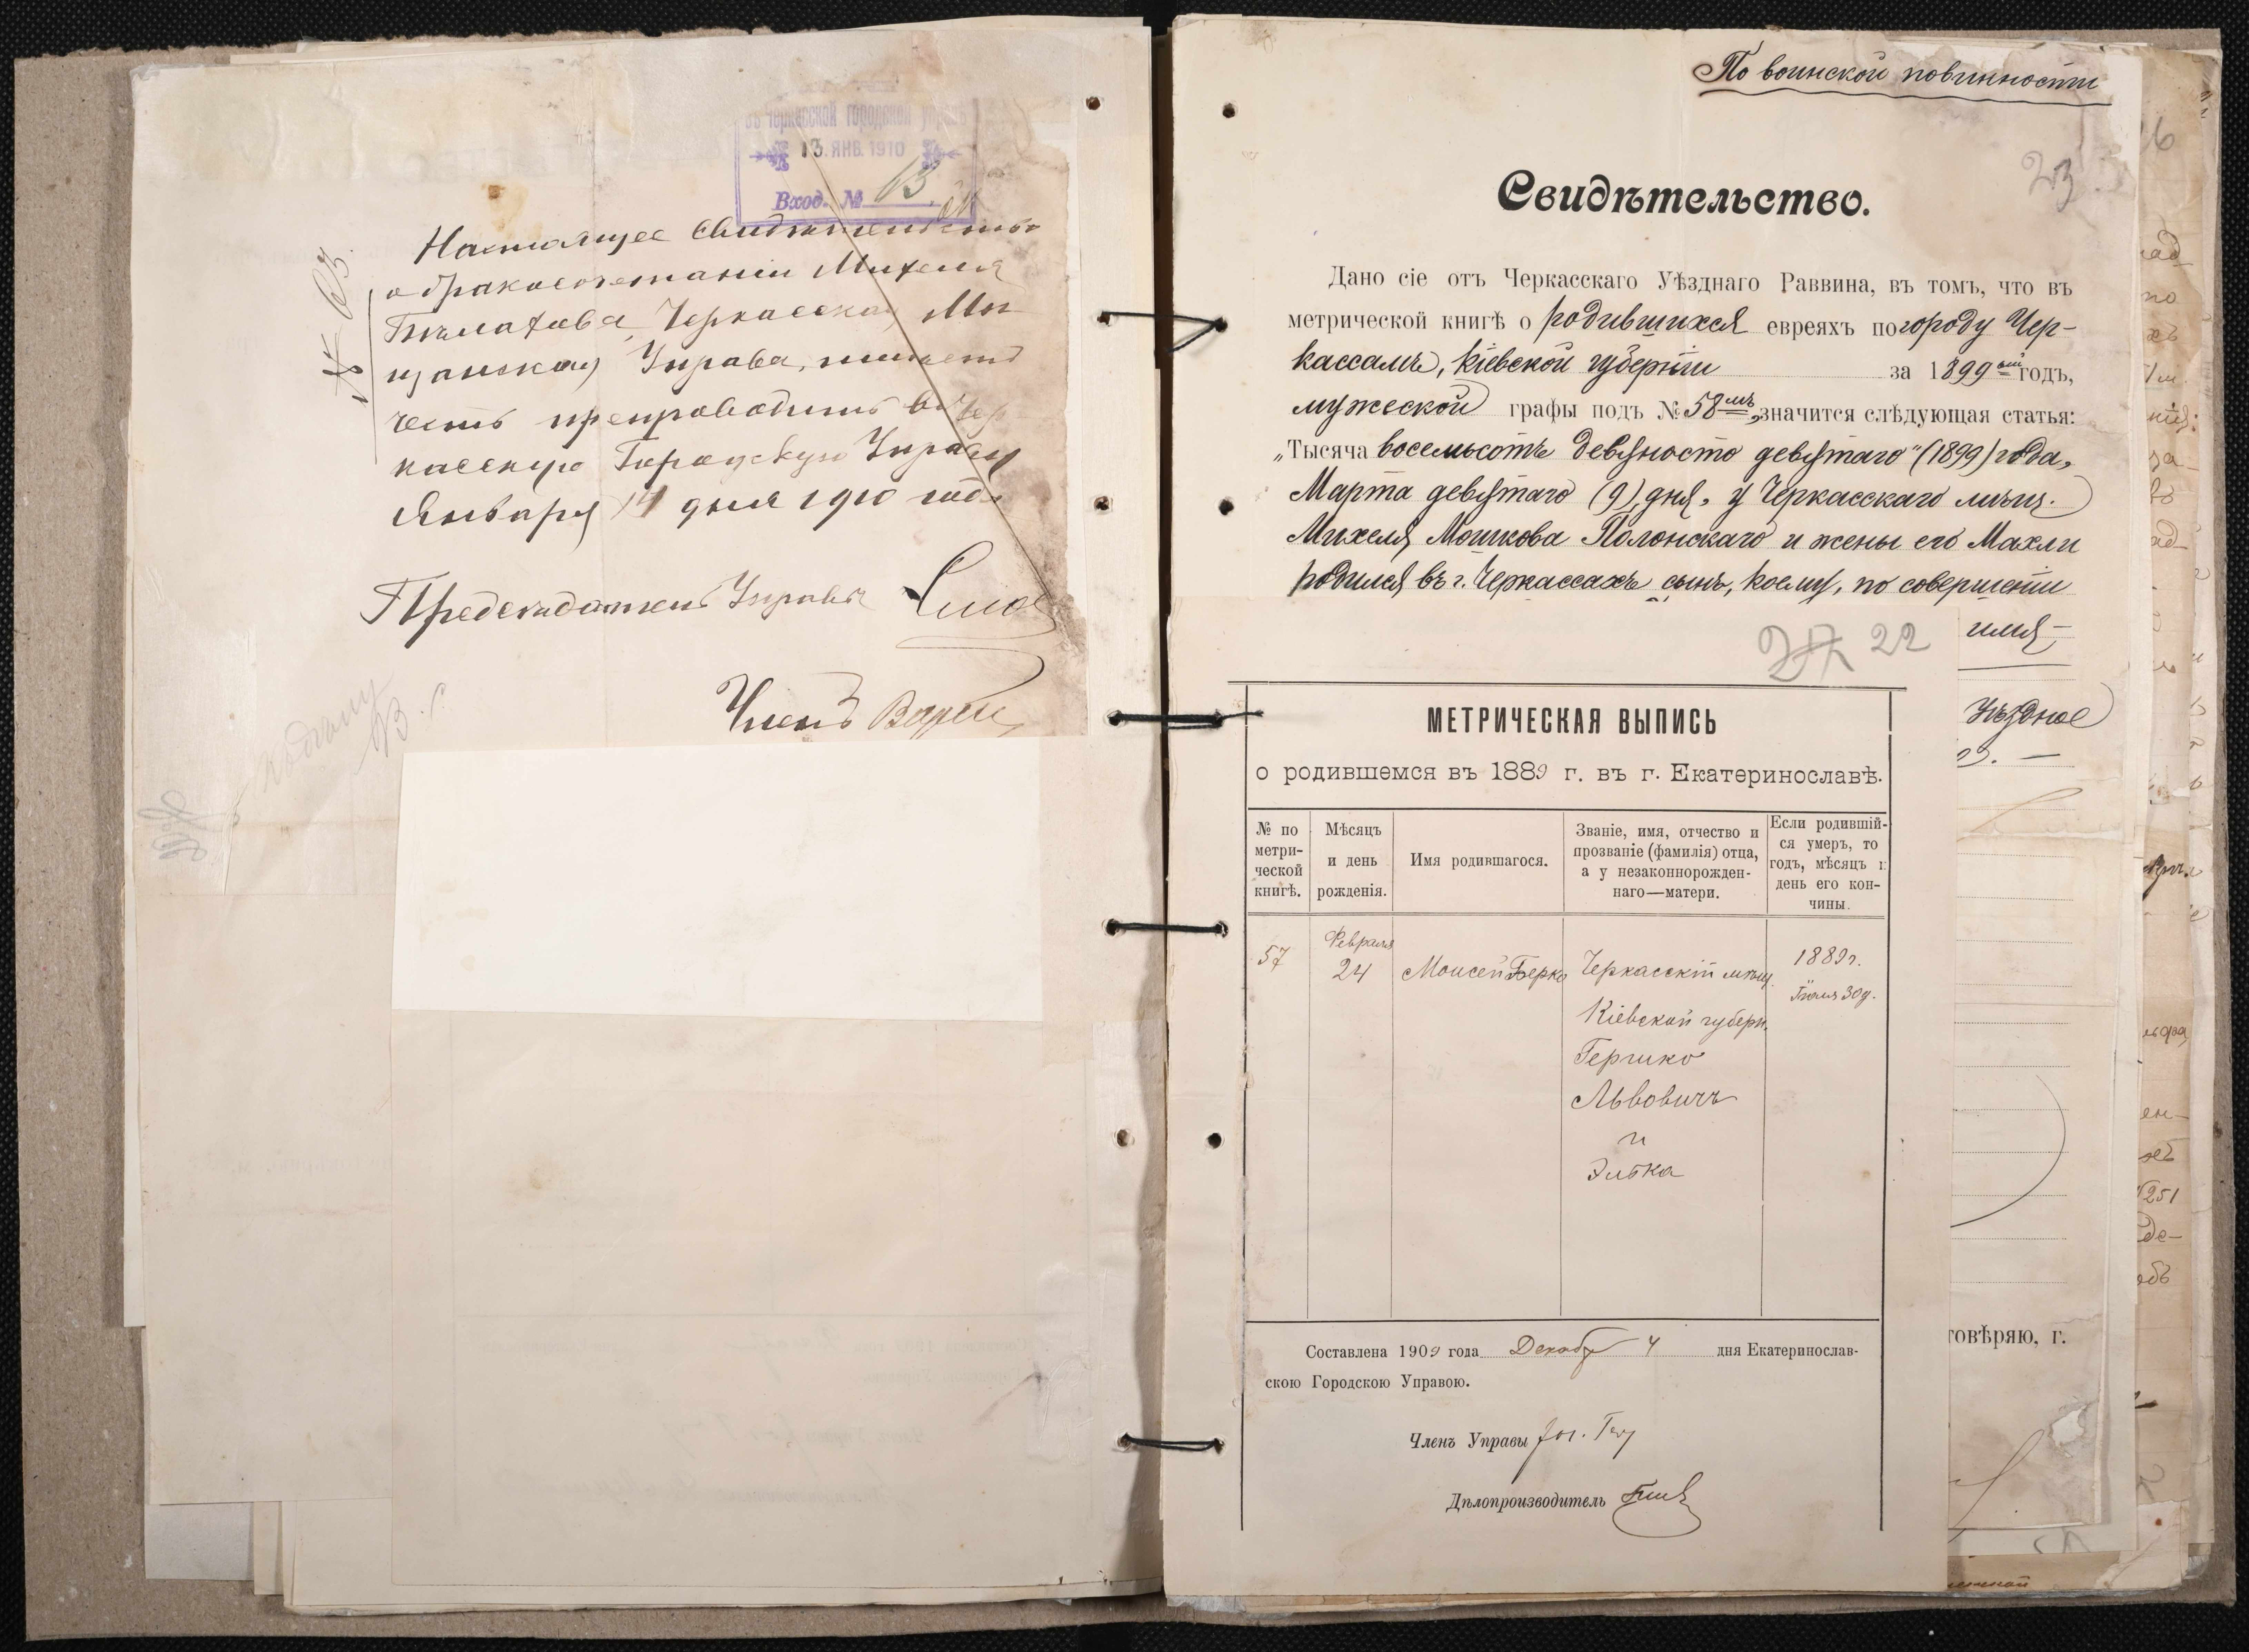 въ Черкасской городской управѣ
13. ЯНВ. 1910
Вход. № 13.
№ 63.
Настоящее свидѣтельство
о бракосочетаніи Михеля
Черкасская Мѣ-
щанская Управа, имѣетъ
честь препроводить въ Чер
касскую Городскую Управу
Января 14 дня 1910 года
Предсѣдатель Управы
Членъ
По воинской повинности
23
Свидѣтельство.
Дано сіе отъ Черкасскаго Уѣзднаго Раввина, въ томъ, что въ
метрической книгѣ о родившихся евреяхъ по городу Чер-
кассамъ, Кіевской губерніи за 1899ый годъ,
мужеской графы подъ № 58мъ, значится слѣдующая статья:
„Тысяча восемьсотъ девяносто девятаго" (1899) года,
Марта девятаго (9) дня, у Черкасскаго мѣщ.
Михеля Мошкова Полонскаго и жены его Махли
родился въ г. Черкассахъ сынъ, коему, по совершеніи
имя-
уѣздное
22
МЕТРИЧЕСКАЯ ВЫПИСЬ
о родившемся въ 1889 г. въ г. Екатеринославѣ.
№ по метри-ческой книгѣ.
Мѣсяцъ и день рожденія.
Имя родившагося.
Званіе, имя, отчество и прозваніе (фамилія) отца, а у незаконнорожден-наго—матери.
Если родившій-ся умеръ, то годъ, мѣсяцъ и день его кон-чины.
57
Февраля
24
Моисей Берко
Черкасскій мѣщ.
Кіевской губерн.
Гершко
Львовичъ
и
Элька
1889 г.
30 д.
Составлена 1909 года Декабр 4 дня Екатеринослав-
скою Городскою Управою.
Членъ Управы
Дѣлопроизводитель
товѣряю, г.